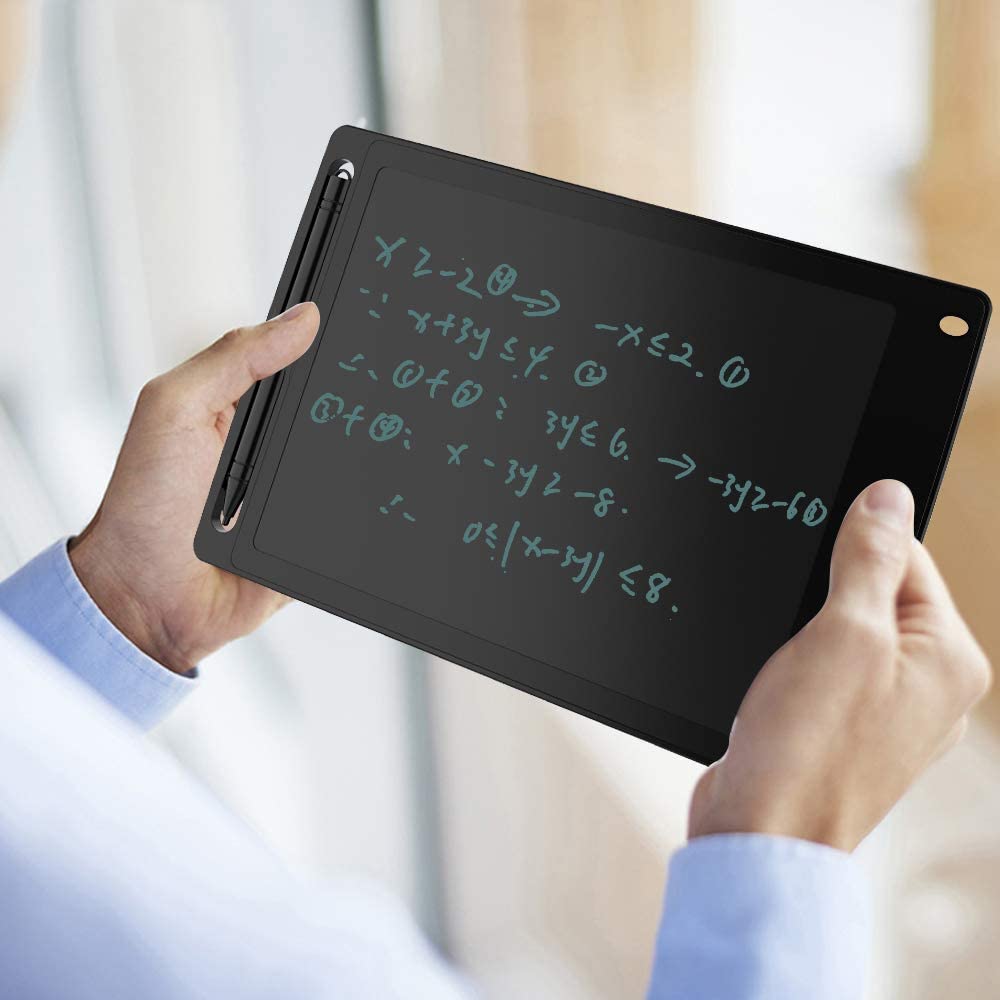 x ≥ -2 ④ → -x ≤ 2. ①
∵ x+3y ≤ 4. ②
∴ ①+②: 3y ≤ 6. → -3y ≥ -6 ③
③+④: x - 3y ≥ -8.
∴ 0 ≤ |x-3y| ≤ 8.